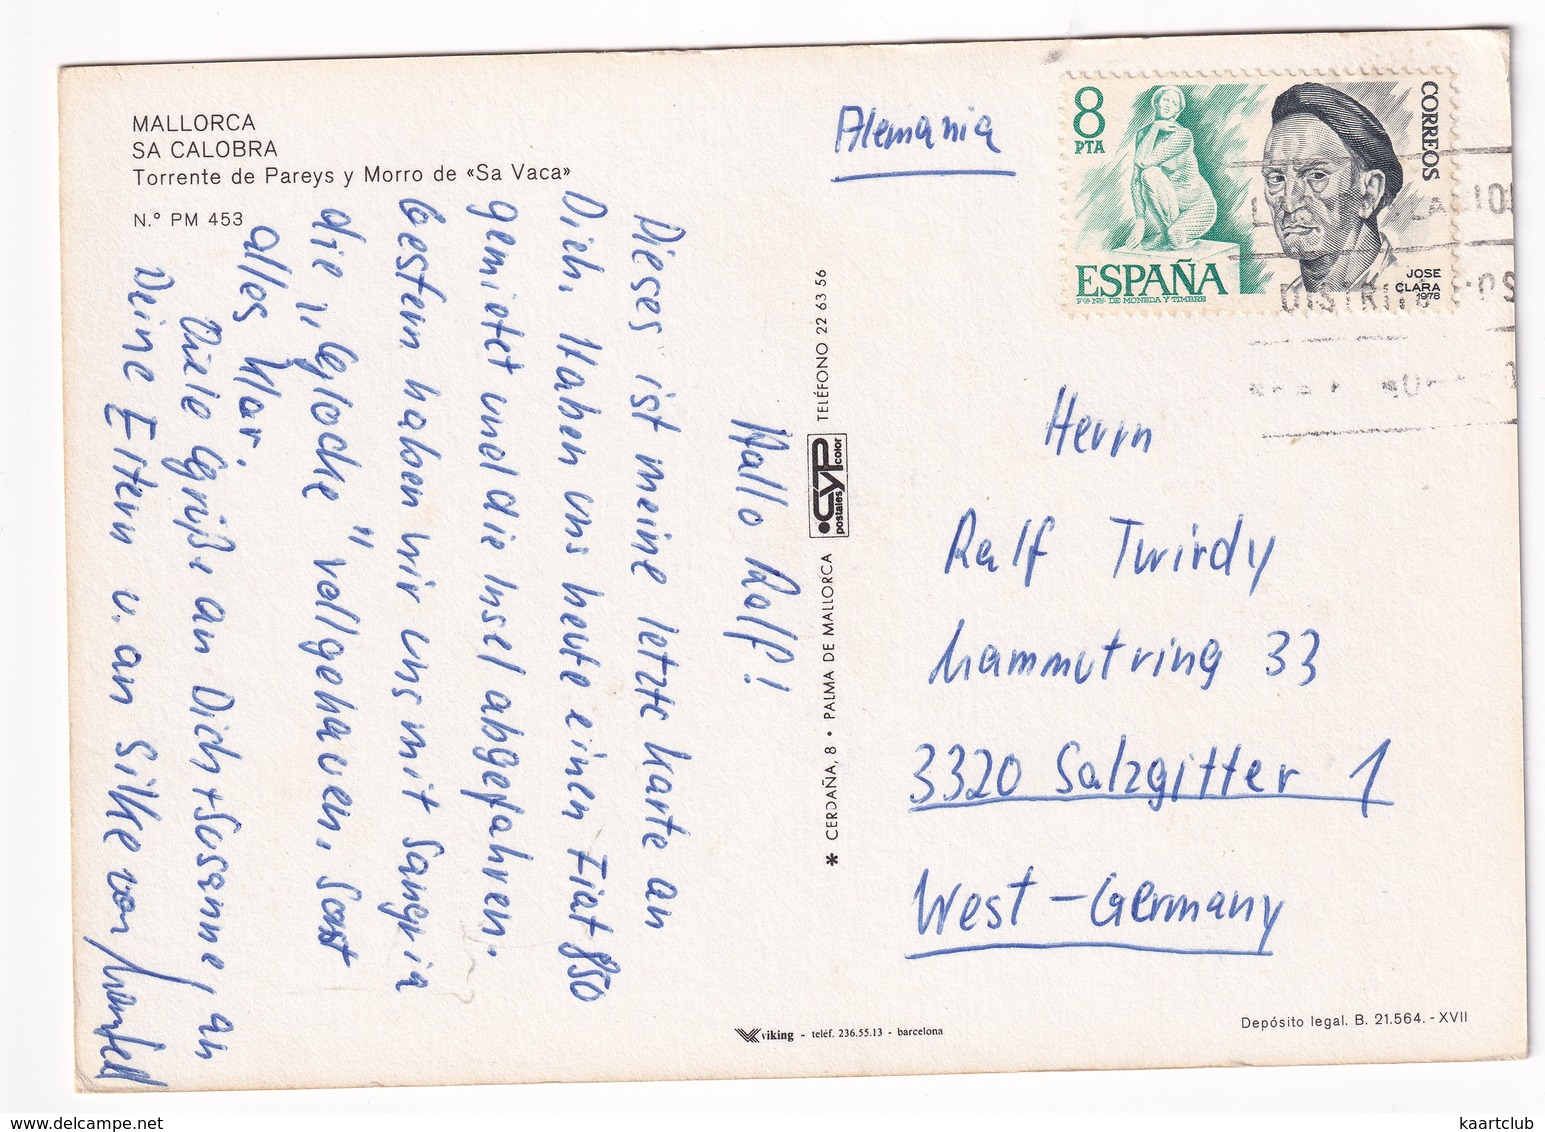 MALLORCA
SA CALOBRA
Torrente de Pareys y Morro de «Sa Vaca»
N.° PM 453
Hallo Ralf!
Dieses ist meine letzte Karte an
Dich. Haben uns heute einen Fiat 850
gemietet und die Insel abgefahren.
Gestern haben wir uns mit Sangria
die „Glocke" vollgehauen. Sonst
alles klar.
Viele Grüße an Dich + Susanne, an
Deine Eltern u. an Silke von
CERDAÑA, 8 • PALMA DE MALLORCA
postales
GYP
color
TELÉFONO 22 63 56
viking - teléf. 236.55.13 - barcelona
Alemania
8
PTA
CORREOS
ESPAÑA
F.N. DE MONEDA Y TIMBRE
JOSE
CLARA
1978
DISTRITO POS
Herrn
Ralf Twirdy
Mammutring 33
3320 Salzgitter 1
West-Germany
Depósito legal. B. 21.564. - XVII
kaartclub